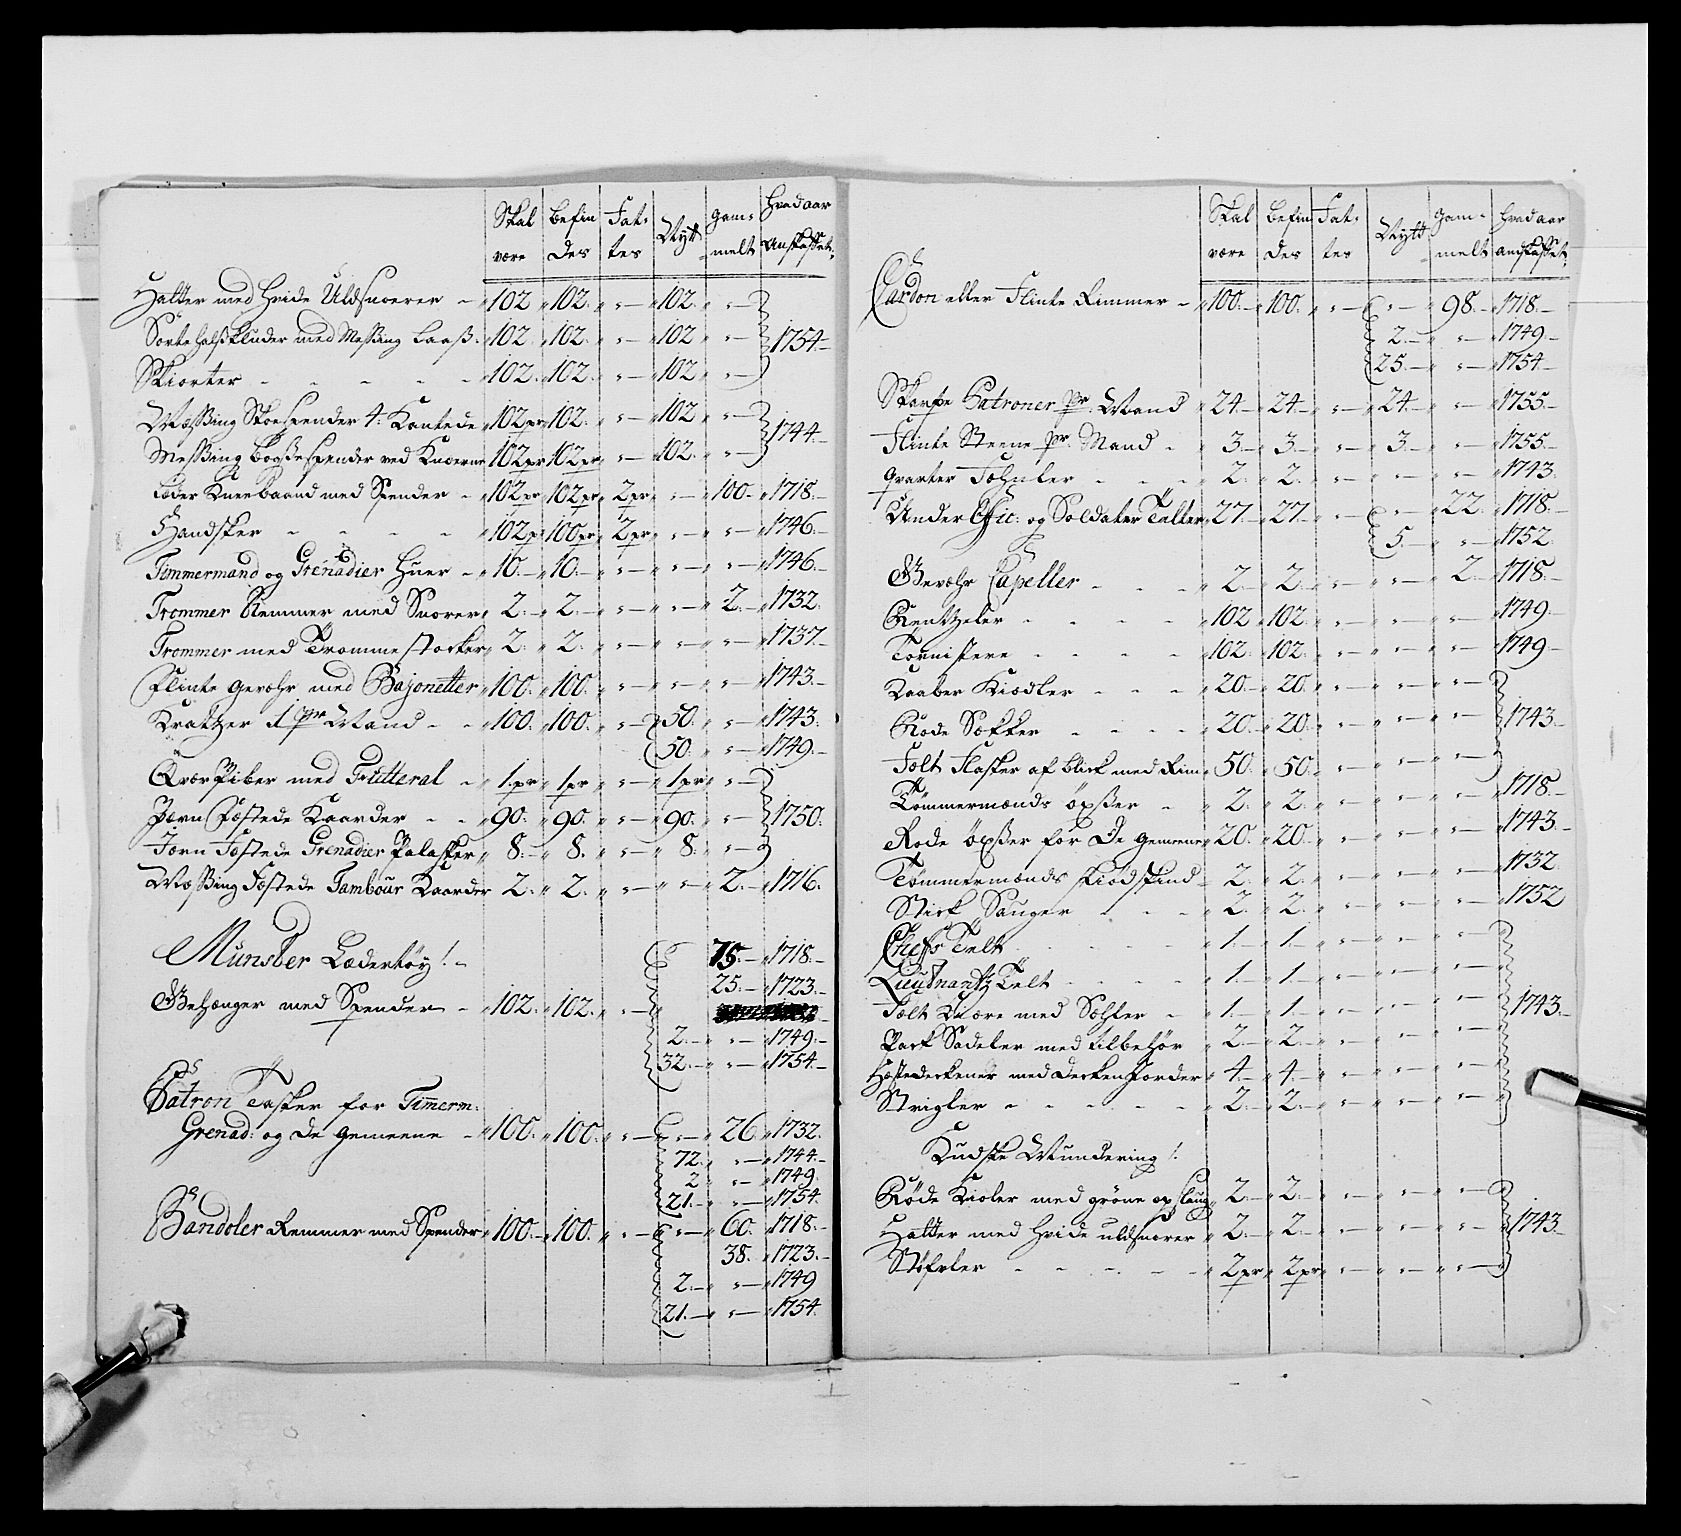 Skal være | Befindes | Fattes | Nytt | Gammelt | Hvad aar Anskaffet
Hatter med Hvide Uldsnoerer - 102 102. - 102. -
Sorte Halsklude med Messing Laaß. 102. 102. - 102 - 1754.
Skiorter - - - - - 102. 102. - 102 -
Messing Skoespender 4: Kantede 102 pr 102. - 102 -
Messing Boxsespender ved Knæerne 102 pr 102 pr - 102. - 1744.
Læder Kneebaand med Spender - 102 pr 102 pr 2 pr - 100 - 1718.
Handsker - - - - 102 p 100 pr 2 pr - - 1746.
Timmermand og Grenadier Huer - 10. 10. - - - 1746.
Trommer Remmer med Snorer 2. 2. - - 2. 1732.
Trommer med Trommestocker 2. 2. - - - 1737.
Flinte Gevæhr med Bajonetter 100. 100. - - - 1743.
Kratzer 1 pr Mand - - 100. 100. - 50. - 1743.
50. - 1749.
Qvær Piber med Futteral - 1. pr 1 pr - 1 pr -
Jærn Fæstede Kaarder - - 90. 90. - 90. - 1750.
Jærn Fæstede Grenadier Palasker 8. 8. - 8. -
Messing Fæstede Tambour Kaarder 2. 2. - - 2. 1716.
Munster Lædertøy! - 75. 1718.
25. 1723.
Gehænger med Spender - 102. 102. -
2. - 1749.
32. - 1754.
Patron Tasker for Timerm:
Grenad: og De Gemeene - 100. 100. - - 26 1732.
72. - 1744.
2 - 1749
21. - 1754.
Bandoler Remmer med Spender 100. 100. - - 60. 1718.
38. 1723.
2. - 1749
21. - 1754.
Skal være | Befindes | Fattes | Nytt | Gammelt | Hvad aar Anskaffet
Cardon eller Flinte Rimmer - 100. 100. - - 98. 1718.
2. - 1749.
25. - 1754
Skarpe Patroner pr. Mand 24. 24. - 24. - 1755.
Flinte Steene pr. Mand - 3. 3. - 3. - 1755.
Qvarter - - - 2. 2. - - - 1743.
Under Offic: og Soldater Telter 27. 27. - - 22. 1718.
5. - 1752.
Gevæhr Capeller - - - 2. 2. - - 2. 1718.
Rentzeler - - - - 102 102. - - - 1749.
Tornistere - - - - 102. 102. - - - 1749
Kaaber Kiedler - - - 20. 20. - - -
Rode Sækker - - - - 20. 20. - - - 1743.
Felt Flasker af Blick med Rim 50. 50. - - -
Tømmermænds Öxßer - 2. 2. - - - 1718.
Rode Öxßer for De Gemeene 20. 20. - - - 1743.
Tømmermænds Skiødskind 2. 2. - - - 1732.
Stick Sauger - - - 2. 2. - - - 1752
Chefs Telt - - - - 1. 1. - - -
Lieutnantz Telt - - - - 1. 1. - - -
Felt med - 1. 1. - - - 1743.
Pack Sadeler med tilbehør 2. 2. - - -
Hæstedeckener med Deckengiorder 4. 4. - - -
Strigler - - - - - 2. 2. - - -
Kudske Mundering!
Røde Kioler med grøne opslaug 2. 2. - - -
Hatter med Hvide uldsnorer 2. 2. - - - 1743.
Støfler - - - - - 2 pr 2 pr - - -